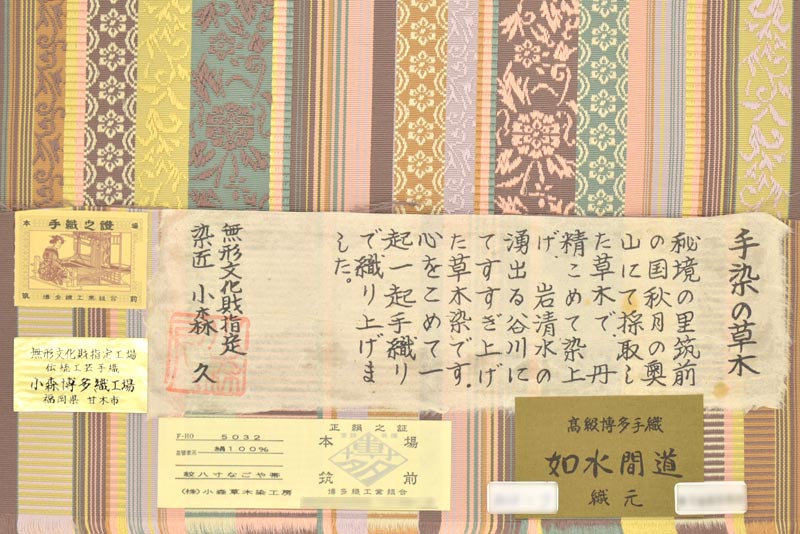 手染の草木
秘境の里筑前
の国秋月の奥
山にて採取し
た草木で、丹
精こめて染上
げ、岩清水の
湧出る谷川に
てすすぎ上げ
た草木染です。
心をこめて一
起一起手織り
で織り上げま
した。
無形文化財指定
染匠 小森 久
本 手織之證 場
筑 博多織工業組合 前
無形文化財指定工場
伝統工芸手織
小森博多織工場
福岡県 甘木市
正絹之証
本 場
筑 前
博多織工業組合
F-HO 5032
絹100%
紋八寸なごや帯
(株)小森草木染工房
高級博多手織
如水間道
織元